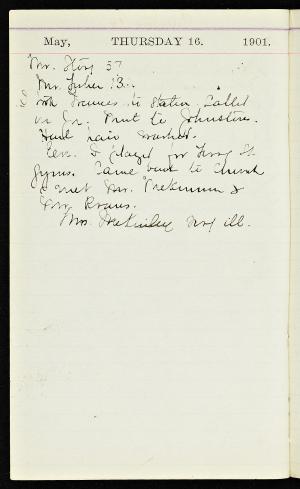 May, THURSDAY 16. 1901.
Mr. 57
Mr. Fisher 13
I took Frances to Station. Called
on Jr. Went to Johnstons.
Had hair washed.
Eve. I played for
Gym. Came back to Church
& met Mr. &
Mr.
Mrs. McKinley very ill.